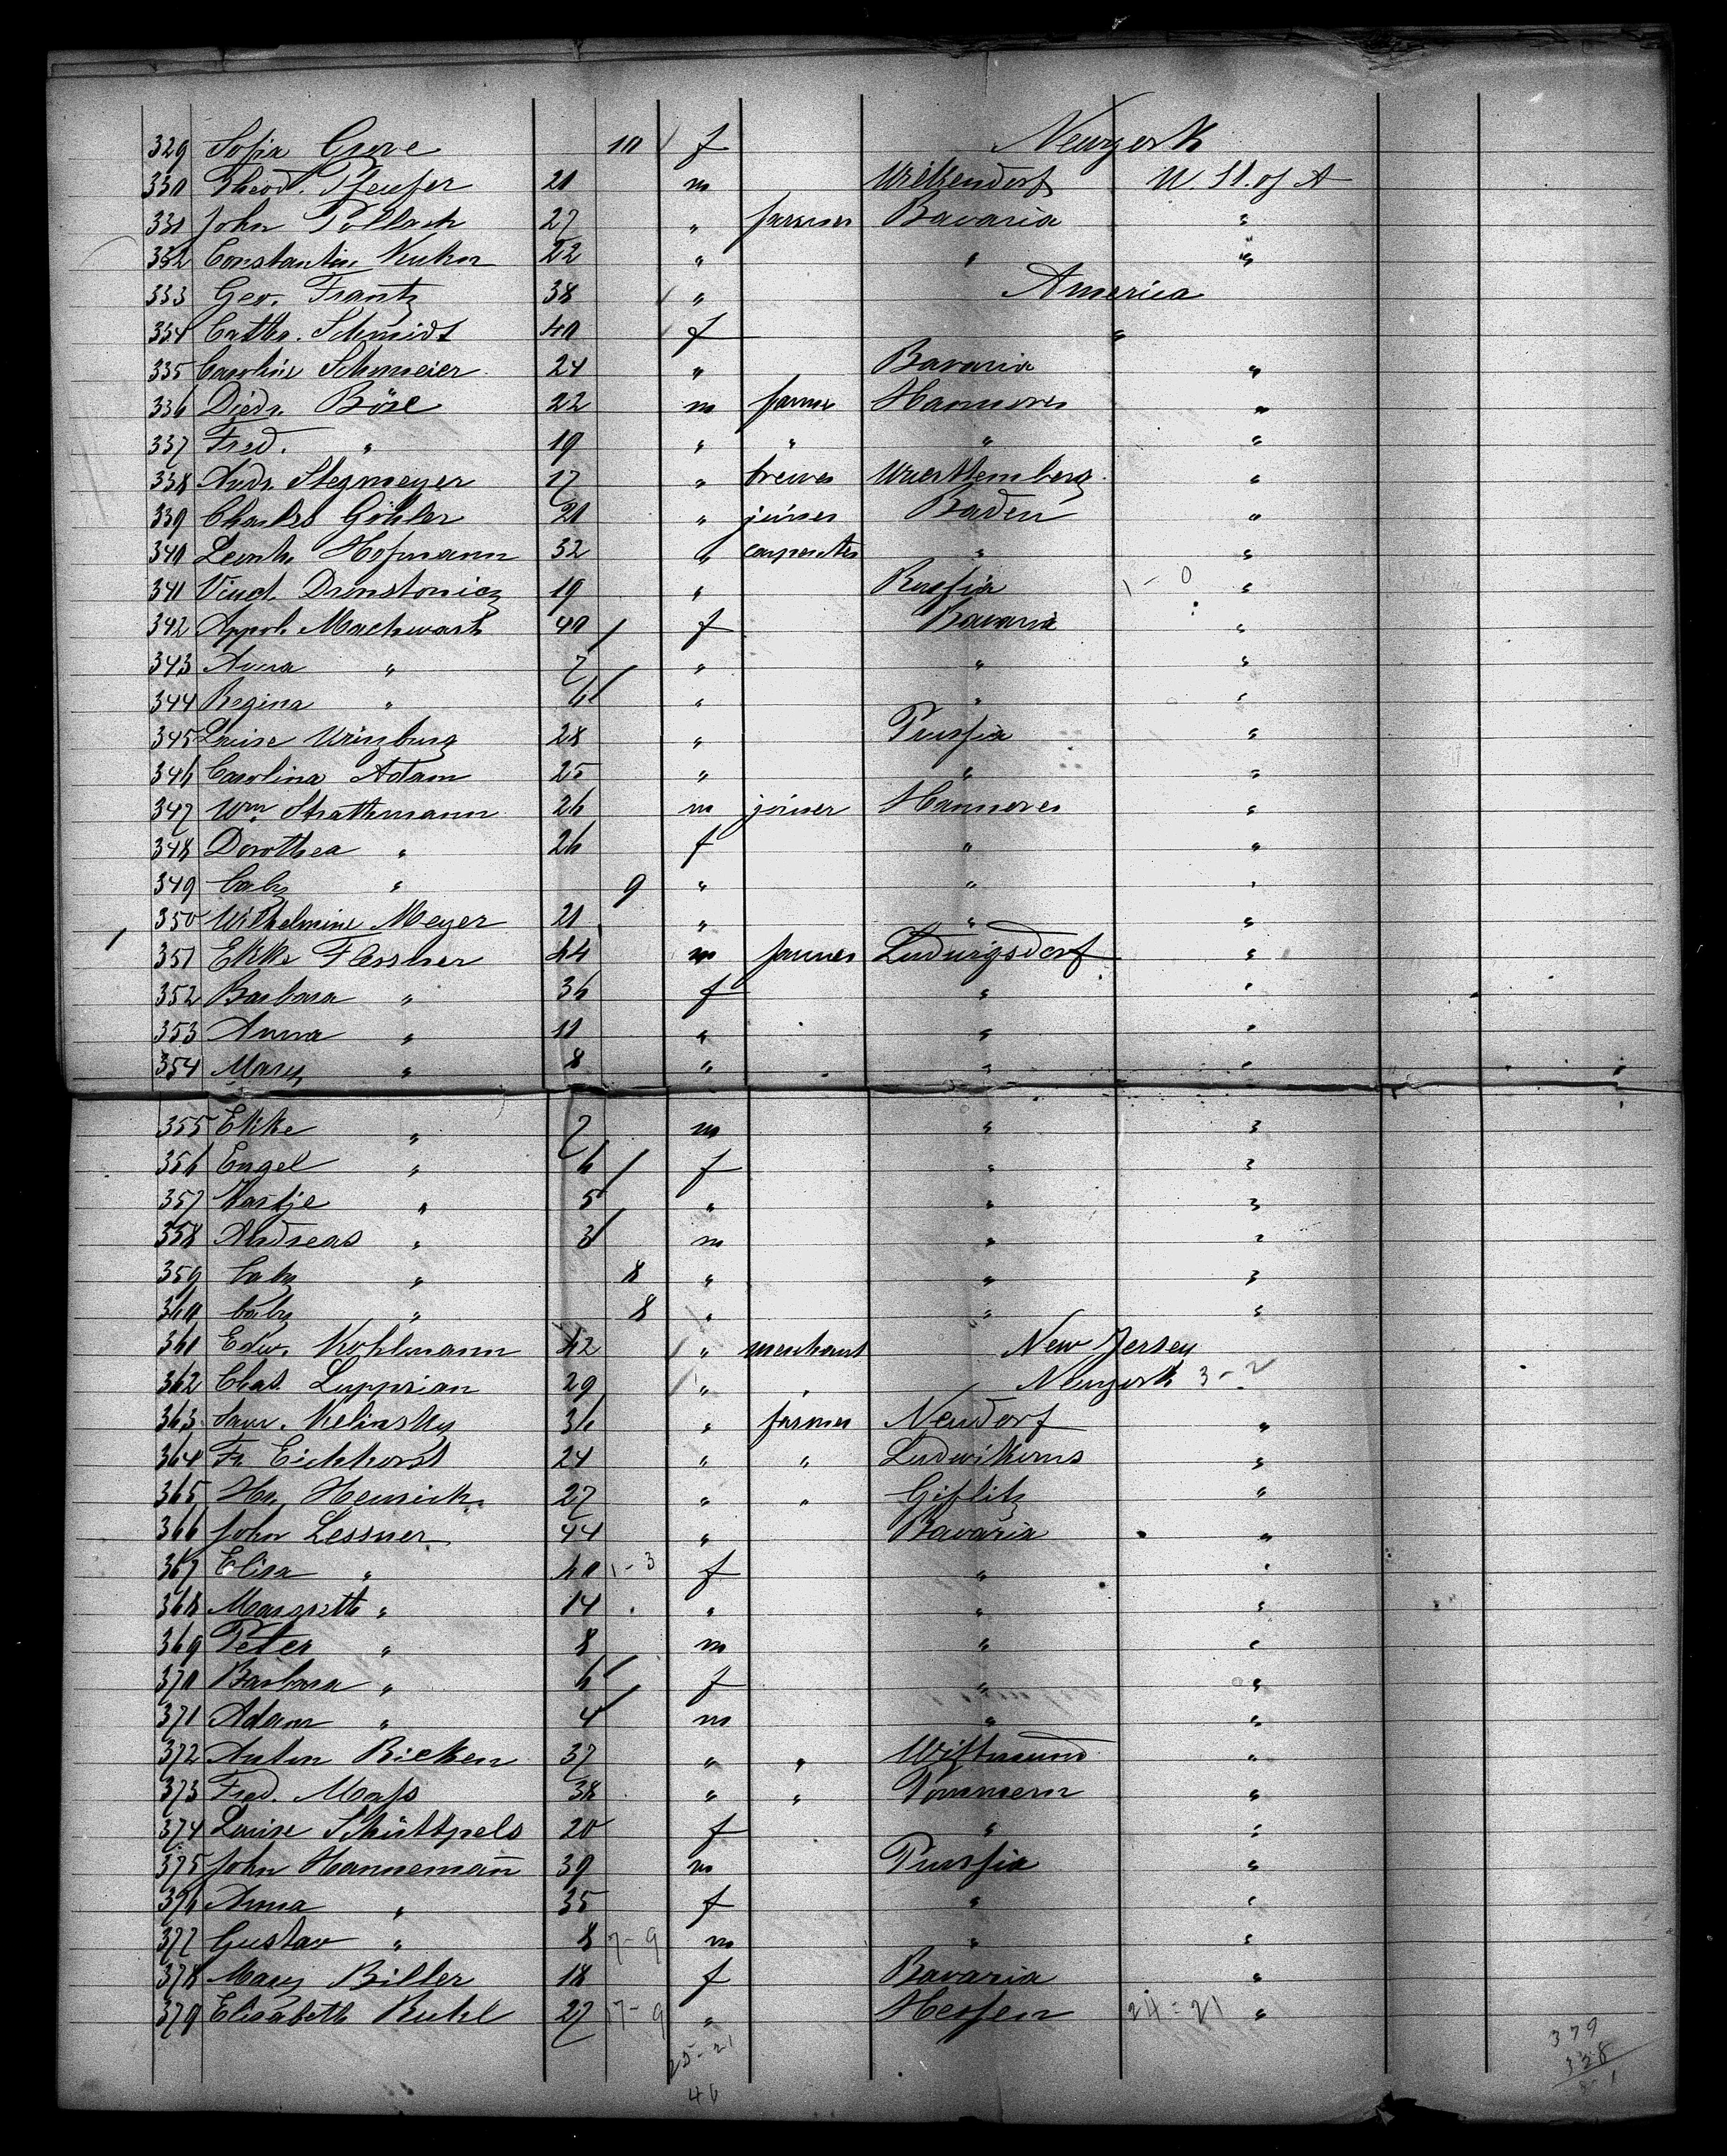 329 Sofia Greve 10 f Newyork
330 Theod. Pfeufer 20 m Wilkendorf U. St. of A
331 John Pollack 27 " farmer Bavaria "
332 Constantin Kuhn 22 " " "
333 Geo. Frantz 38 " America
334 Cathr. Schmidt 40 f "
335 Caroline Schmeier 24 " Bavaria "
336 Diedr. Böse 22 m farmer Hannover "
337 Fred. " 19 " " " "
338 Andr. Stegmeyer 17 " brewer Wuerttemberg "
339 Charles Göhler 20 " joiner Baden "
340 Leonh. Hofmann 32 " carpenter " "
341 Vinct. 19 " Russia 1-0 "
342 Appol. Machwart 40 f Bavaria "
343 Anna " 7 " " "
344 Regina " 6 " " "
345 Louise Würzburg 28 " Prussia "
346 Carolina Adam 25 " " "
347 Wm Strathmann 26 m joiner Hannover "
348 Dorothea " 26 f " "
349 baby " 9 " " "
350 Wilhelmine Meyer 21 " " "
351 Ekke Flessner 44 m farmer Ludwigsdorf "
352 Barbara " 36 f " "
353 Anna " 11 " " "
354 Mary " 8 " " "
355 Ekke " 7 m " "
356 Engel " 6 f " "
357 " 5 " " "
358 Andreas " 3 m " "
359 baby " 8 " " "
360 baby " 8 " " "
361 Edw. Kohlmann 42 " merchant New Jersey
362 Chas. Lupprian 29 " " Newyork 3-2
363 Sam. Kelinsky 36 " farmer Neudorf "
364 Fr. Eichhorst 24 " " "
365 Hr. Henrich 27 " " Giflitz "
366 John Lessner 44 " Bavaria "
367 Elisa " 40 1-3 f " "
368 Margreth " 14 " " "
369 Peter " 8 m " "
370 Barbara " 6 f " "
371 Adam " 4 m " "
372 Anton Ricken 37 " " Wittmund "
373 Fred. Mass 38 " " Pommern "
374 Louise Schüttpels 20 f " "
375 John Hannemann 39 m Prussia "
376 Anna " 35 f " "
377 Gustav " 8 7-9 m " "
378 Mary Biller 18 f Bavaria "
379 Elisabeth Ruhl 27 17-9 " Hessen 24=21 "
25-21
46
379
328